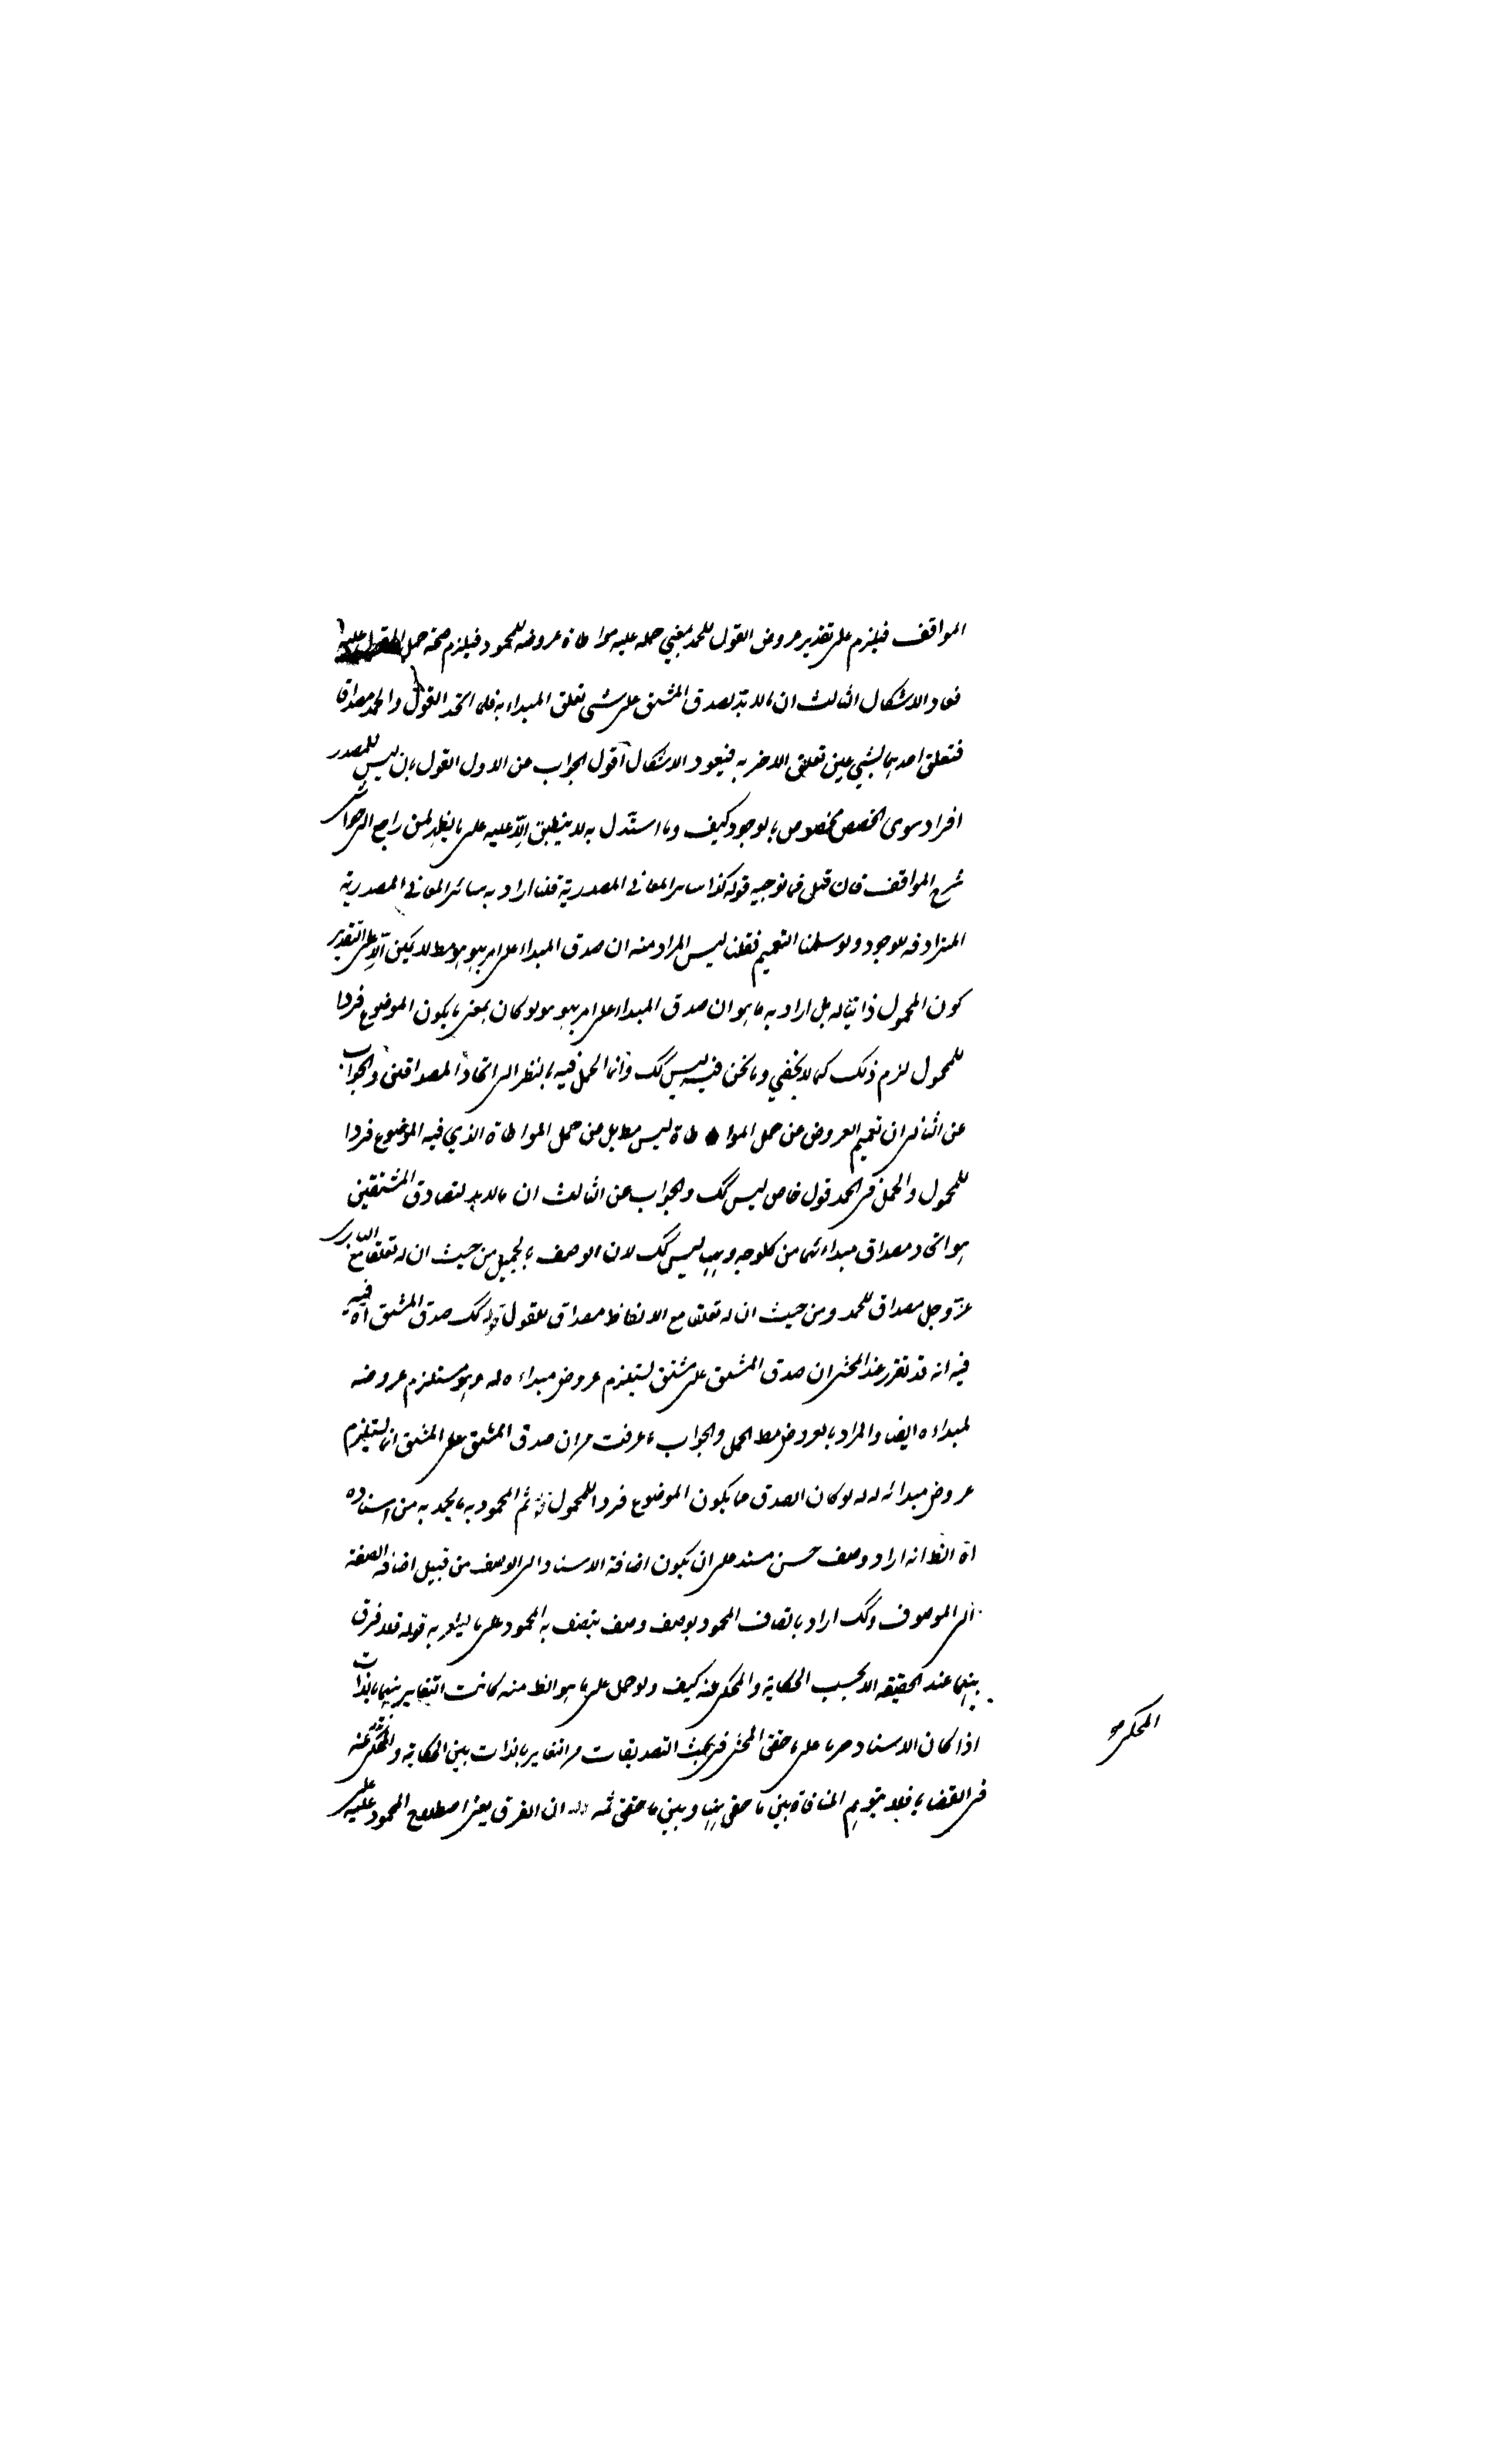 المواقف فيلزم على تقدير عروض القول للحمد بمعنى حمله عليه مواطاة عروضه للمحمود فيلزم صحة حمل القول عليه
فعاد الاشكال الثالث ان مالا بد لصدق المشتق على شيء تعلق المبداء به فلما اتحد القول والحمد مصداقا
فتعلق احدهما بشيء عين تعلق الاخر به فيعود الاشكال اقول الجواب عن الاول القول بان ليس للمصدر
افراد سوى الحصص مخصوص بالوجود كيف وما استدل به لا ينطبق الا عليه على ما يظهر لمن راجع الى حواشي
شرح المواقف فان قيل فما توجيه قوله كذا سائر المعاني المصدرية قلنا اراد به سائر المعاني المصدرية
المترادفة للوجود ولو سلمنا التعميم فقلنا ليس المراد منه ان صدق المبداء على امر بهو هو مط لا يكون الا على تقدير
كون المحمول ذاتيا له بل اراد به ما هو ان صدق المبداء على امر بهو هو لو كان بمعنى ما يكون الموضوع فردا
للمحمول لزم ذلك كما لا يخفى وما نحن فيه ليس كك وانما الحمل فيه بالنظر الى اتحاد المصداقين والجواب
عن الثاني ان تعميم العروض من حمل المواطاة ليس مط بل من حمل المواطاة الذي فيه الموضوع فردا
للمحمول والحمل في الحمد قول خاص ليس كك والجواب عن الثالث ان مالا بد لتصادق المشتقين
هو اتحاد مصداق مبدائهما من كل وجه وههنا ليس كك لان الوصف بالجميل من حيث ان له تعلقا مع الباري
عز وجل مصداق للحمد ومن حيث ان له تعلقا مع الالفاظ مصداق للقول قوله كك صدق المشتق اه فيه
فيه انه قد تقرر عند المحشي ان صدق المشتق على مشتق يستلزم عروض مبداءه له وهو مستلزم عروضه
لمبداءه ايضا والمراد بالعروض مط الحمل والجواب ما عرفت من ان صدق المشتق على المشتق انما يستلزم
عروض مبدائه له لو كان الصدق مما يكون الموضوع فردا للمحمول قوله ثم المحمود به ما يحمد به من اسناده
اه الظ انه اراد وصف حسن مسند على ان يكون اضافة الاسناد الى الوصف من قبيل اضافة الصفة
الى الموصوف وكك اراد باتصاف المحمود بوصف وصف يتصف به المحمود على ما ينادي به قوله فلا فرق
بينهما عند الحقيقة الا بحسب الحكاية والمحكي عنه كيف ولو حمل على ما هو الظ منه كانت التغاير بينهما بالذات
اذا كان الاسناد على ما حقق المحشي في بحث التصديقات من التغاير بالذات بين الحكاية والمحكي عنه
في القضايا فلا يتوهم المنافاة بين ما حقق ههنا وبين ما حقق ثمه قوله ان الفرق يعني اصطلاح المحمود عليه على
المحكي